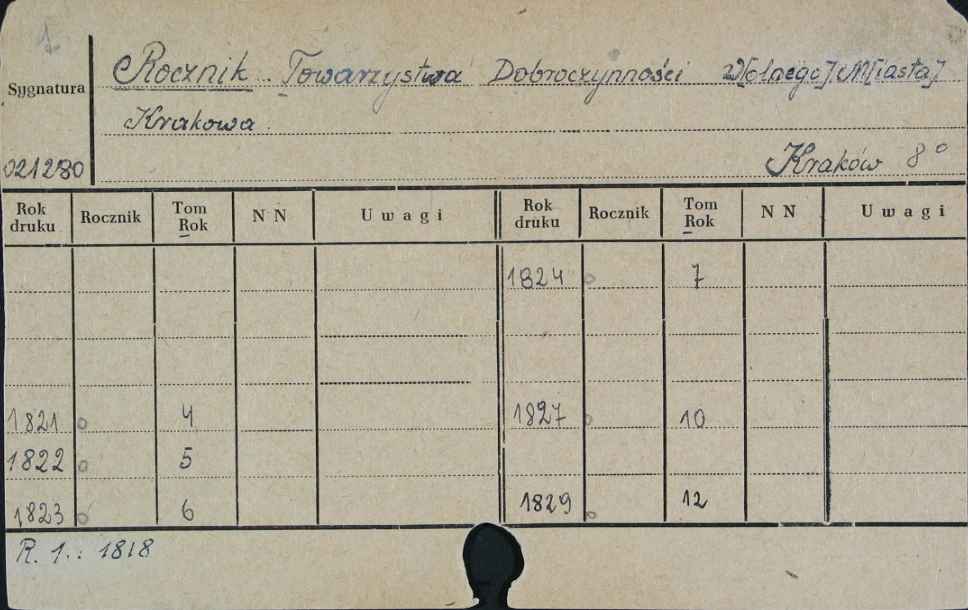 1
Rocznik Towarzystwa Dobroczynności W[olnego] M[iasta]
Sygnatura
Krakowa
021280 Kraków 8°
Rok druku Rocznik Tom Rok N N Uwagi Rok druku Rocznik Tom Rok N N Uwagi
1824 7
1821 4 1827 10
1822 5
1823 6 1829 12
R. 1.: 1818